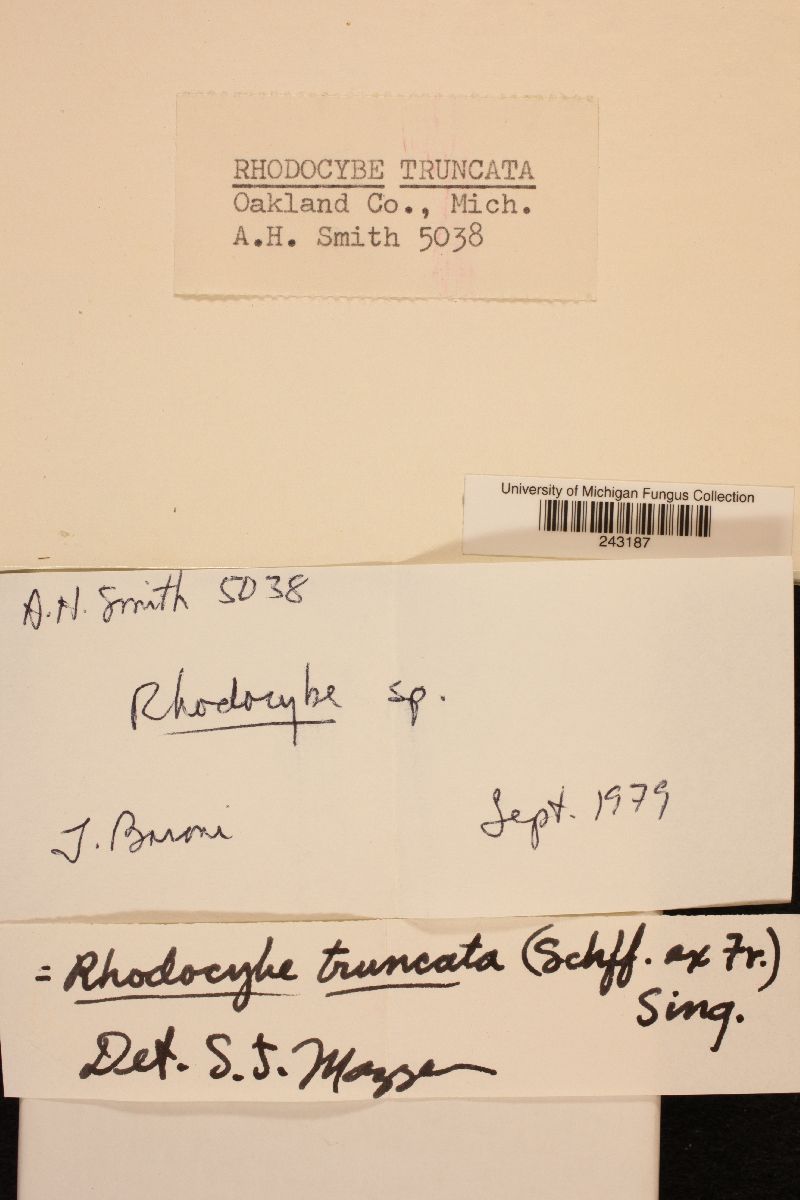 RHODOCYBE TRUNCATA
Oakland Co., Mich.
A.H. Smith 5038
University of Michigan Fungus Collection
243187
A.H. Smith 5038
Rhodocybe sp.
T. Baroni
Sept. 1979
= Rhodocybe truncata (Schff. ex Fr.)
Sing.
Det. S.J. Mazzer